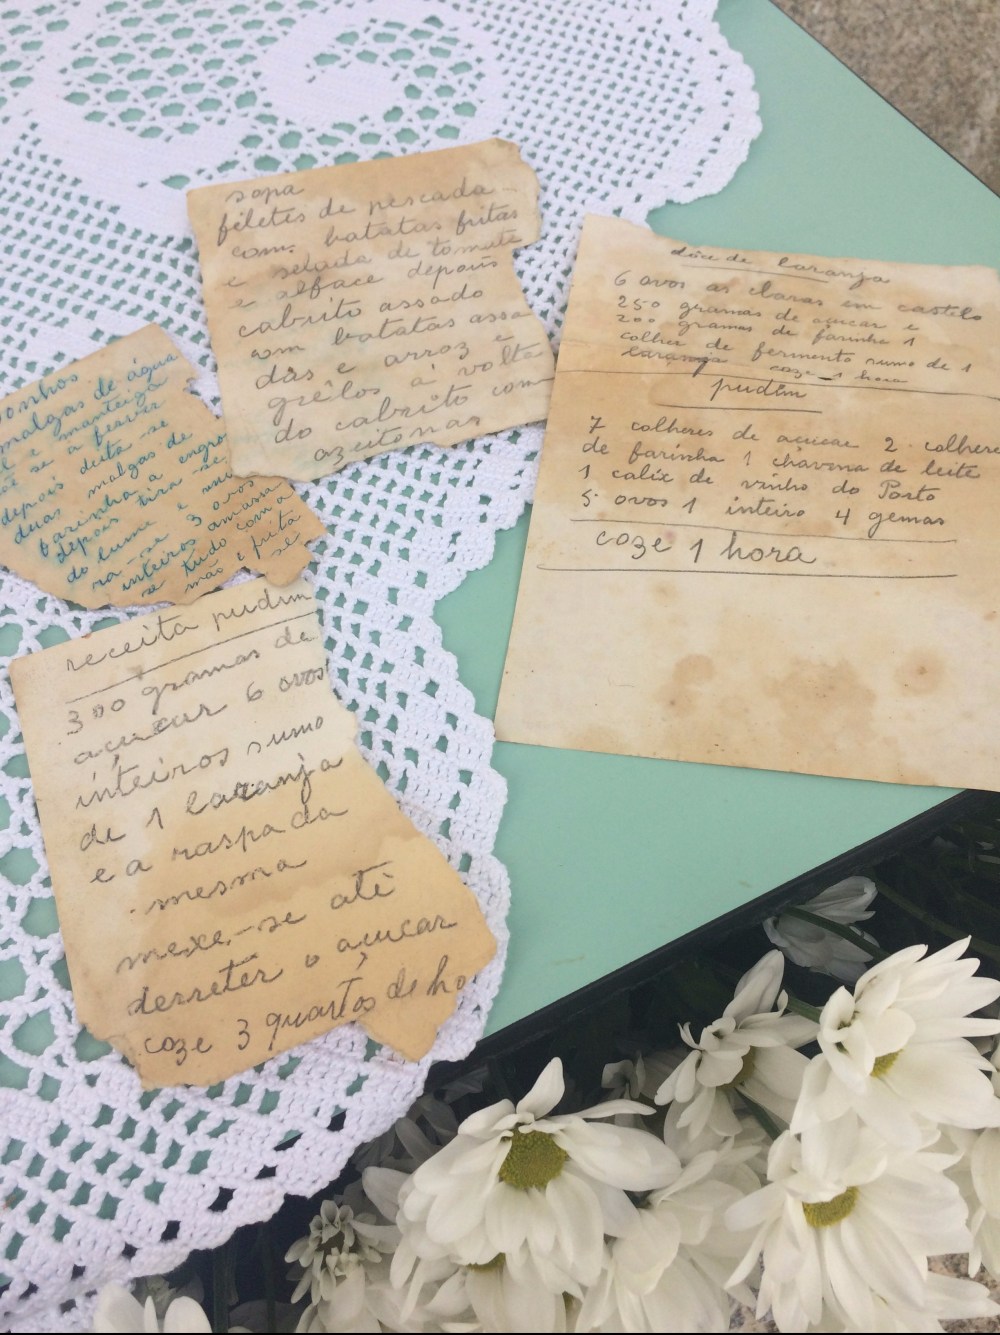 sopa
filetes de pescada
com batatas fritas
e selada de tomate
e alface depois
cabrito assado
com batatas assa
das e arroz e
grêlos á volta
do cabrito com
azeitonas
dôce de laranja
6 ovos as claras em castelo
250 gramas de açucar e
200 gramas de farinha 1
colher de fermento sumo de 1
laranja coze 1 hora
pudim
7 colheres de açucar 2 colhere
de farinha 1 chavena de leite
1 calix de vinho do Porto
5 ovos 1 inteiro 4 gemas
coze 1 hora
onhos
malgas de água
l e manteiga
se a ferver
depois deita-se
duas malgas de
farinha a engro
depois tira se
do lume e
ra-se 3 ovos
inteiros amassa
se tudo com a
mão e frita
se
receita pudim
300 gramas de
açucar 6 ovos
inteiros sumo
de 1 laranja
e a raspa da
mesma
mexe-se até
derreter o açucar
coze 3 quartos de ho